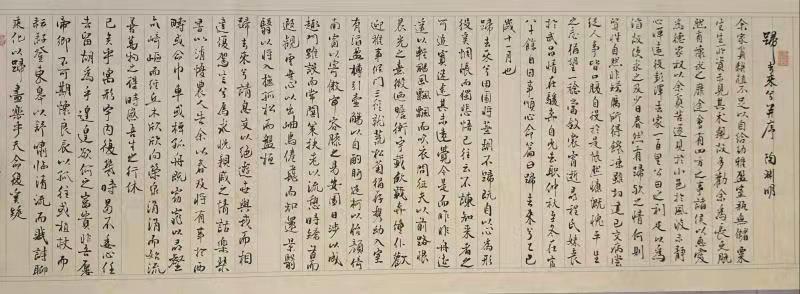 歸去来兮并序 陶淵明
余家貧耕植不足以自給幼稚盈室瓶無儲粟
生生所資未見其术親故多勸余為長吏脫
然有懷求之靡途會有四方之事諸侯以惠愛
為德家叔以余貧苦遂見於小邑於風波未靜
心憚遠役彭澤去家百里公田之利足以為
酒故便求之及少日眷然有歸歟之情何則
質性自然非矯厲所得飢凍雖切違己交病嘗
從人事皆口腹自役於是悵然慷慨愧平生
之志猶望一稔當斂裳宵逝尋程氏妹喪
於武昌情在駿奔自免去職仲秋至冬在官
八十餘日因事順心命篇曰歸去来兮乙巳
歲十一月也
歸去来兮田園將蕪胡不歸既自以心為形
役奚惆悵而獨悲悟已往之不諫知来者之
可追實迷途其未遠覺今是而昨非舟遙
遙以輕颺風飄飄而吹衣問征夫以前路恨
晨光之熹微乃瞻衡宇載欣載奔僮僕歡
迎稚子候門三徑就荒松菊猶存攜幼入室
有酒盈樽引壺觴以自酌眄庭柯以怡顏倚
南窗以寄傲審容膝之易安園日涉以成
趣門雖設而常關策扶老以流憩時矯首而
遐觀雲無心以出岫鳥倦飛而知還景翳
翳以將入撫孤松而盤桓
歸去来兮請息交以絕遊世與我而相
違復駕言兮焉求悅親戚之情話樂琴
書以消憂農人告余以春及將有事於西
疇或命巾車或棹孤舟既窈窕以尋壑
亦崎嶇而經丘木欣欣向榮泉涓涓而始流
善萬物之得時感吾生之行休
已矣乎寓形宇内復幾時曷不委心任
去留胡為乎遑遑欲何之富貴非吾願
帝鄉不可期懷良辰以孤往或植杖而
耘耔登東皋以舒嘯臨清流而賦詩聊
乘化以歸盡樂乎天命復奚疑